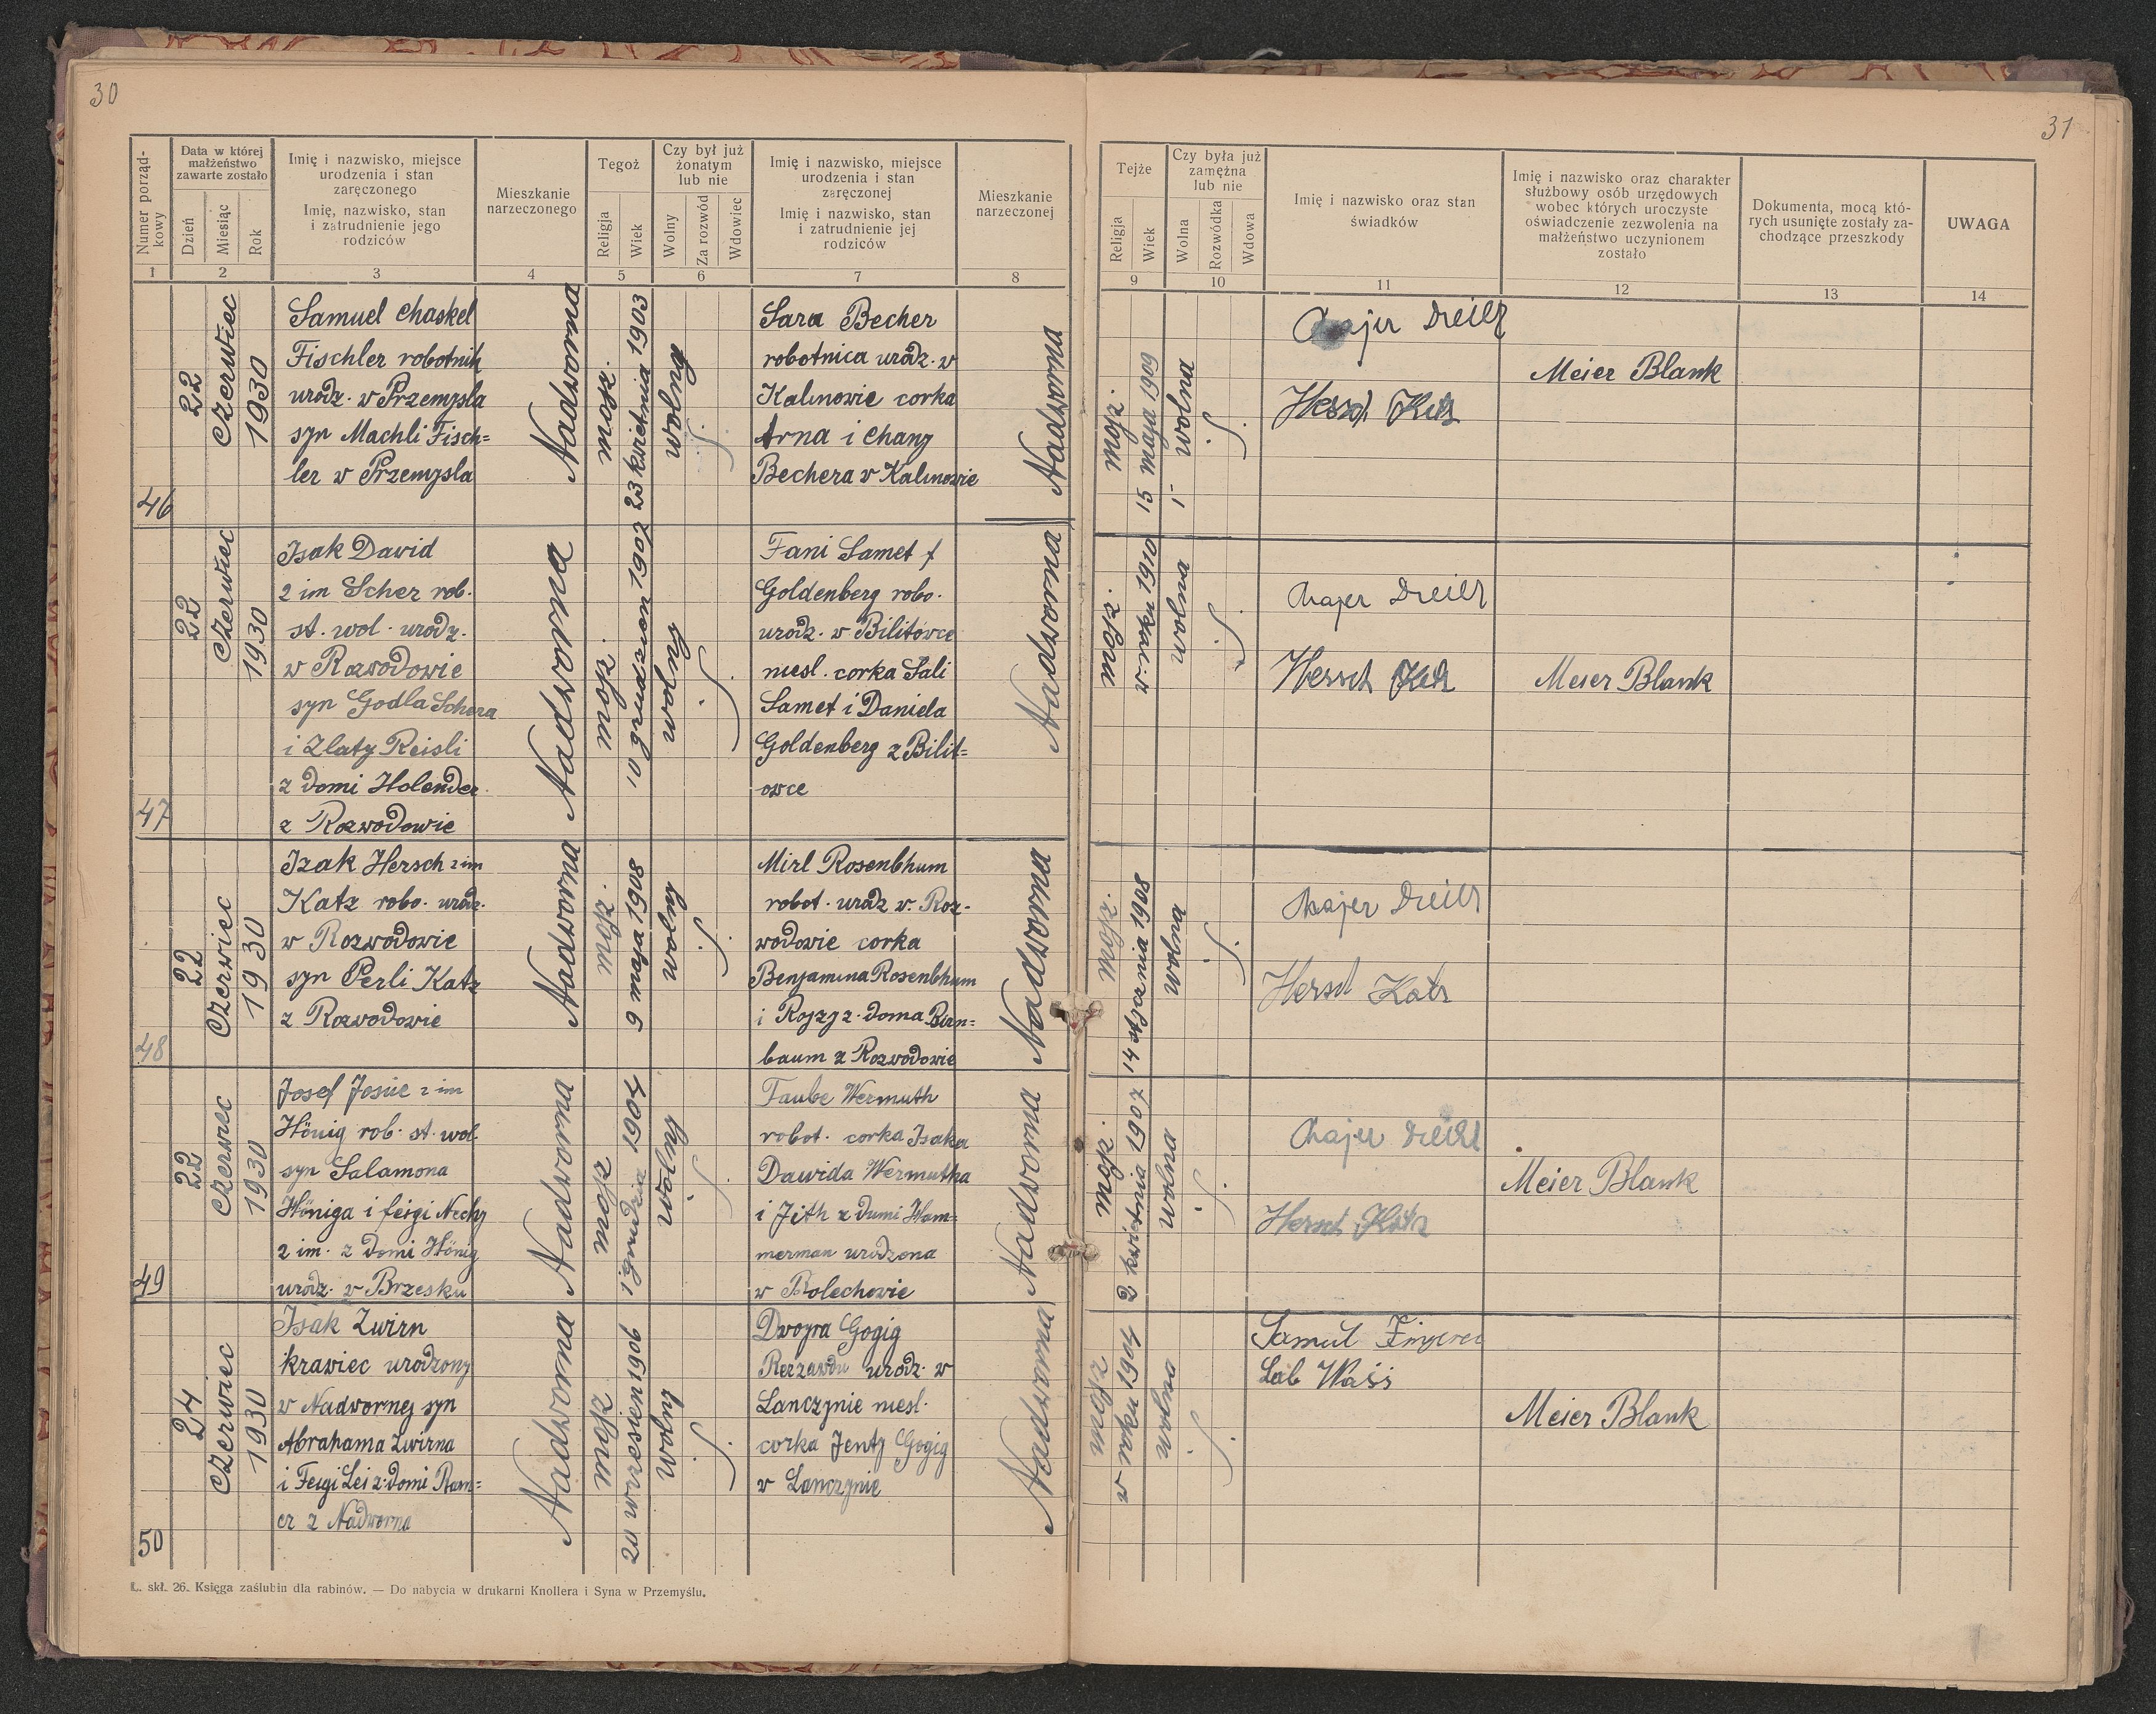 30
31
Numer porządkowy
Data w której małżeństwo zawarte zostało
Dzień
Miesiąc
Rok
Imię i nazwisko, miejsce
urodzenia i stan
zaręczonego
Imię, nazwisko, stan
i zatrudnienie jego
rodziców
Mieszkanie
narzeczonego
Tegoż
Religja
Wiek
Czy był już
żonatym
lub nie
Wolny
Za rozwód
Wdowiec
Imię i nazwisko, miejsce
urodzenia i stan
zaręczonej
Imię i nazwisko, stan
i zatrudnienie jej
rodziców
Mieszkanie
narzeczonej
Tejże
Religja
Wiek
Czy była już
zamężna
lub nie
Wolna
Rozwódka
Wdowa
Imię i nazwisko oraz stan
świadków
Imię i nazwisko oraz charakter
służbowy osób urzędowych
wobec których uroczyste
oświadczenie zezwolenia na
małżeństwo uczynionem
zostało
Dokumenta, mocą któ-
rych usunięte zostały za-
chodzące przeszkody
UWAGA
1 2 3 4 5 6 7 8 9 10 11 12 13 14
46
22
Czerwiec
1930
Samuel Chaskel
Fischler robotnik
urodz. w Przemysla
syn Machli Fisch=
ler w Przemysla
Nadworna
mojż.
23 kwietnia 1903
wolny
Sara Becher
robotnica urodz. w
Kalinowie corka
Arna i Chany
Bechera w Kalinowie
Nadworna
mojż.
15 maja 1909
wolna
Hersch Katz
Meier Blank
47
22
Czerwiec
1930
Isak Dawid
2 im Scher rob.
st. wol. urodz.
w Rozwodowie
syn Godla Schera
i Zlaty Reisli
z domi Holender
z Rozwodowie
Nadworna
mojż.
10 grudzien 1902
wolny
Fani Samet f
Goldenberg robo.
urodz. w Bilitowce
niesl. corka Sali
Samet i Daniela
Goldenberg z Bilit=
owce
Nadworna
mojż.
w roku 1910
wolna
Chajer
Hersch Katz
Meier Blank
48
22
Czerwiec
1930
Izak Hersch 2 im
Katz robo. urodz.
w Rozwodowie
syn Perli Katz
z Rozwodowie
Nadworna
mojż.
9 maja 1908
wolny
Mirl Rosenbhum
robot. urodz w. Roz-
wodowie corka
Benjamina Rosenbhum
i Rojzy z doma Birn=
baum z Rozwodowie
Nadworna
mojż.
14 stycznia 1908
wolna
Chajer
Hersch Katz
49
22
Czerwiec
1930
Josef Josue 2 im
Hönig rob. st. wol
syn Salamona
Höniga i feigi Nechy
2 im. z domi Hönig
urodz. w Brzesku
Nadworna
mojż
1 grudzia 1904
wolny
Taube Wermuth
robot. corka Isaka
Dawida Wermutha
i Jith z dumi Ham=
merman urodzona
w Bolechowie
Nadworna
mojż.
2 kwietnia 1907
wolna
Chajer
Hersch Katz
Meier Blank
50
24
Czerwiec
1930
Isak Zwirn
krawiec urodzony
w Nadwornej syn
Abrahama Zwirna
i Feigi Lei z. domi Ram=
er z Nadworna
Nadworna
mojż
20 wrzesien 1906
wolny
Dwojra Gogig
urodz. w
Lanczynie niesl.
corka Jenty Gogig
w Lanczynie
Nadworna
mojż
w roku 1904
wolna
Samul
Leib Wass
Meier Blank
L. skł. 26. Księga zaślubin dla rabinów. — Do nabycia w drukarni Knollera i Syna w Przemyślu.